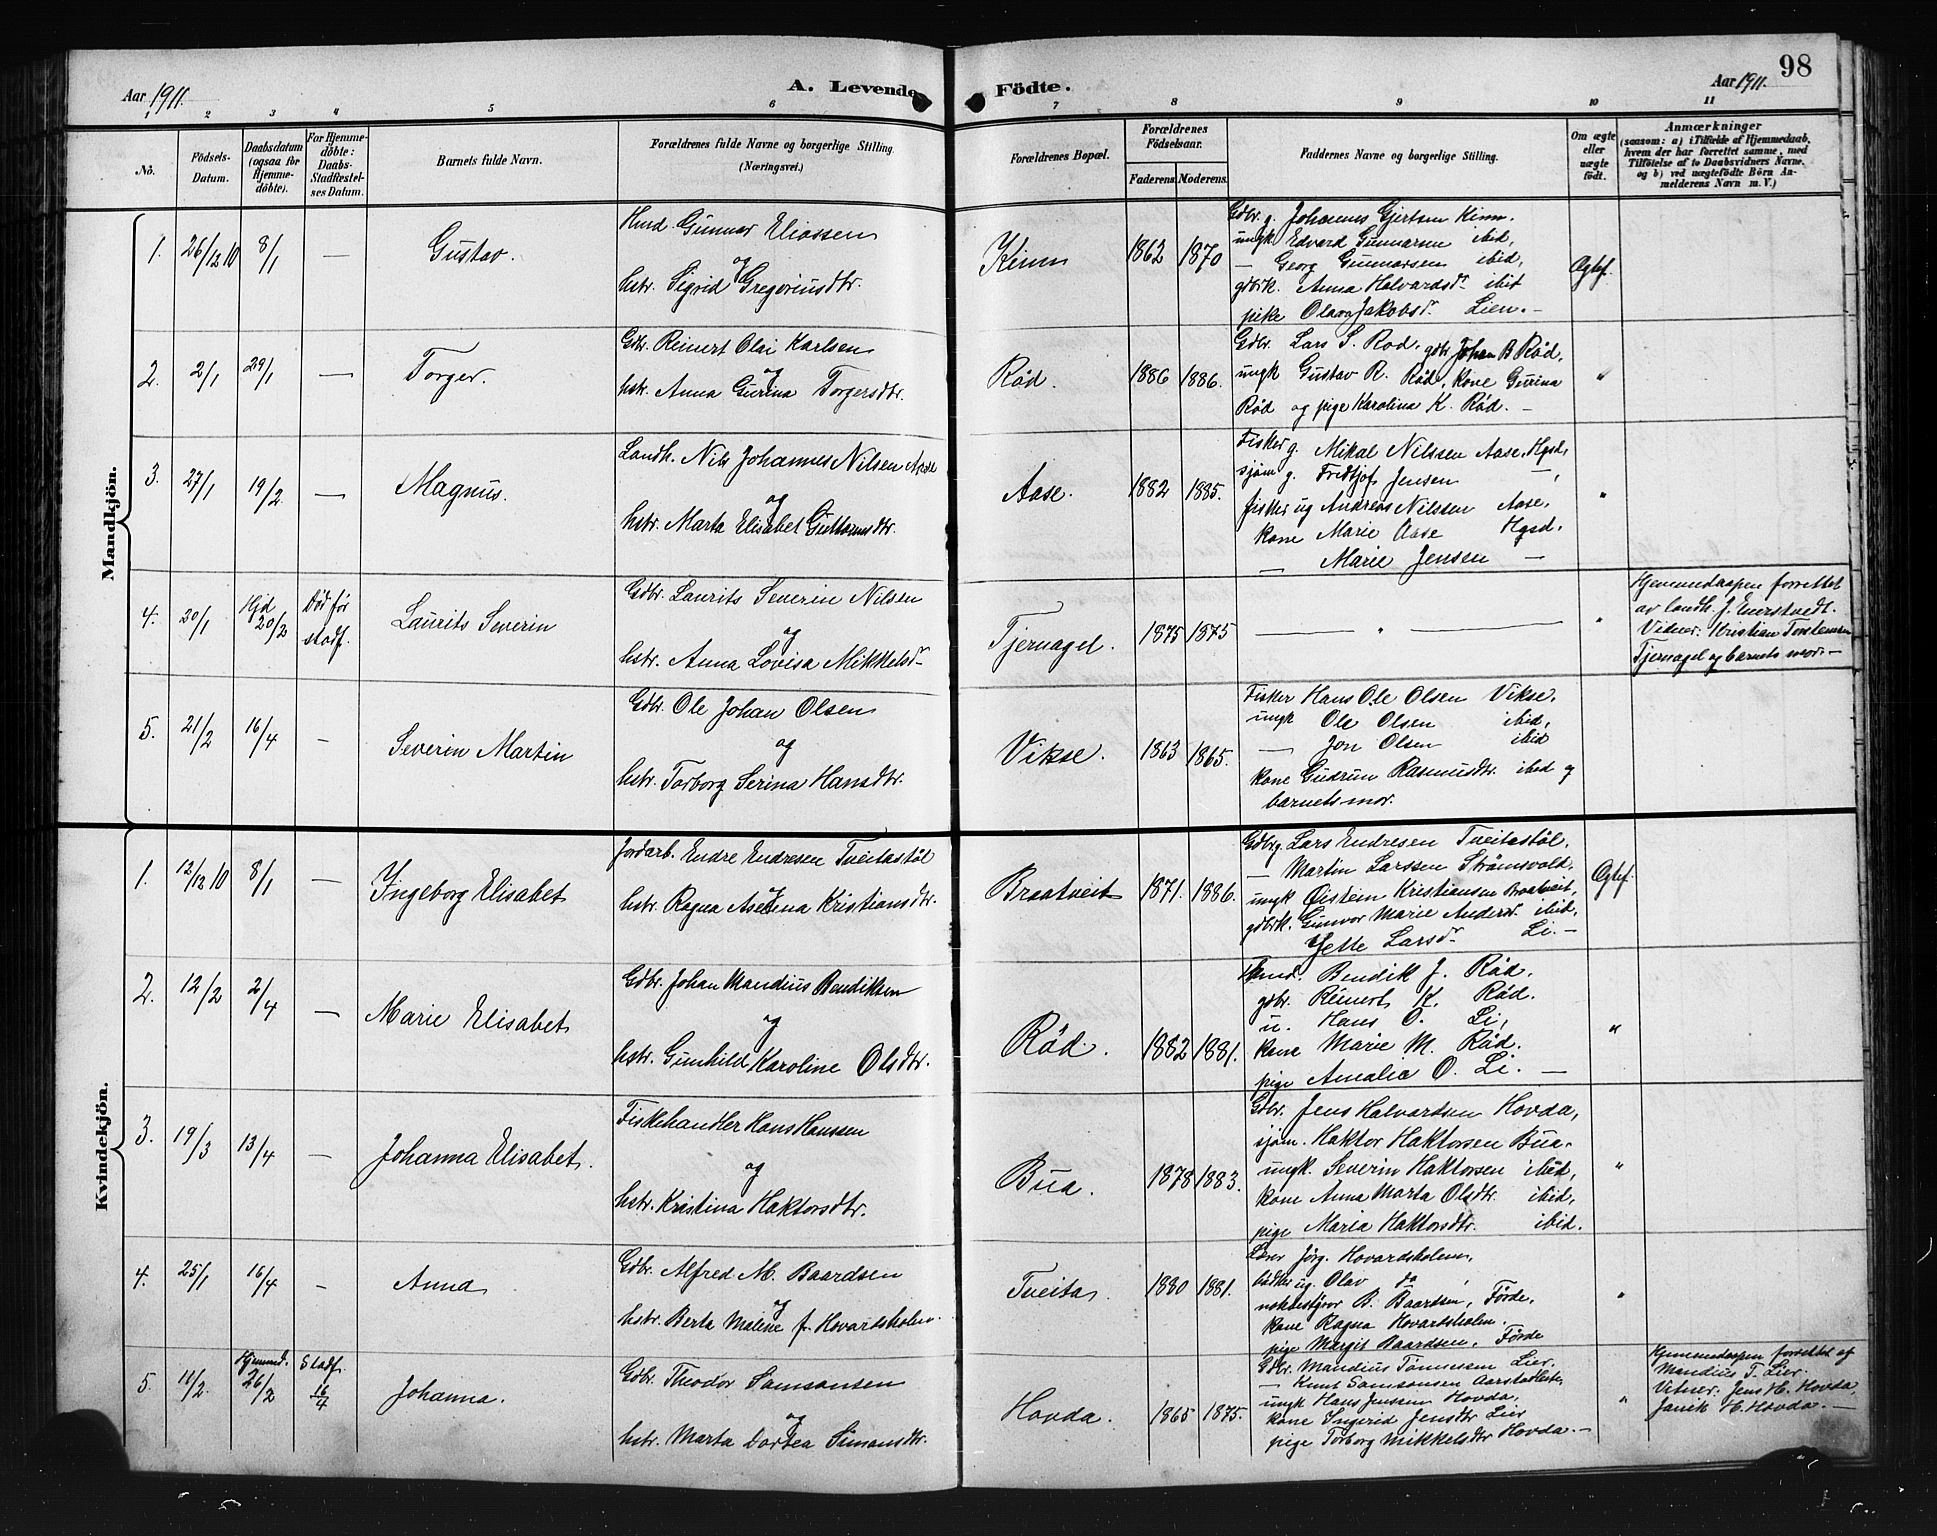 Aar 1911.
A. Levende
Födte.
Aar 1911.
98
1 2 3 4 5 6 7 8 9 10 11
No.
Födsels-
Datum.
Daabsdatum
(ogsaa for
Hjemme-
döbte).
For Hjemme-
döbte:
Daabs-
Stadfæstel-
ses Datum.
Barnets fulde Navn.
Forældrenes fulde Navne og borgerlige Stilling.
(Næringsvei.)
Forældrenes Bopæl.
Forældrenes
Födselsaar.
Faderens. Moderens.
Faddernes Navne og borgerlige Stilling.
Om ægte
eller
uægte
födt.
Anmærkninger
(saasom: a) i Tilfælde af Hjemmedaab,
hvem der har forrettet samme, med
Tilföielse af to Daabsvidners Navne,
og b) ved uægtefödte Börn An-
melderens Navn m. V.)
Mandkjön.
1. 26/12 10 8/1 — Gustav.
Hmd. Gunnar Eliassen
og
hstr. Sigrid Gregoriusdtr.
Kinn 1862 1870
Gdbr. g. Johannes Gjertsen Kinn.
ungk. Edvard Gunnarsen ibid,
— Georg Gunnarsen ibid,
gdbrk. Anna Halvardsdr ibid
pike Olava Jakobsdr. Lien. —
Ægtef.
2. 2/1 29/1 — Torger.
Gdbr. Reinert Olai Karlsen
og
hstr. Anna Gurina Torgersdtr.
Rød. 1886 1886.
Gdbr. Lars S. Rød, gdbr Johan B Rød,
ungk Gustav R. Rød, kone Gurina
Rød og pige Karolina K. Rød. —
"
3. 27/1 19/2. — Magnus.
Landh. Nils Johannes Nilsen Aase
og
hstr. Marta Elisabet Guttormsdtr.
Aase. 1882 1885.
Fisker g. Mikal Nilssen Aase, Hgsd,
sjøm g. Fridtjof Jensen —,
fisker ug Andreas Nilsen Aase,
kone Marie Aase Hgsd.
— Marie Jenssen —
"
4. 20/1 Hjd 20/2 Død før stadf. Laurits Severin
Gdbr. Laurits Severin Nilsen
og
hstr. Anna Lovisa Mikkelsdr
Tjernagel. 1875 1875
— " —
"
Hjemmedaapen forrettet
av landh. J. Enerstvedt.
Vidner: Kristian Torstensen
Tjernagel og barnets mor. —
5. 21/2 16/4 — Severin Martin
Gdbr. Ole Johan Olsen
og
hstr. Torborg Serina Hansdtr.
Vikse. 1863 1865.
Fisker Hans Ole Olsen Vikse.
ungk Ole Olsen ibid,
— Jon Olsen ibid
kone Gudrun Rasmusdtr. ibid og
barnets mor.
Kvindekjön.
1. 12/12 10 8/1 — Ingeborg Elisabet
Jordarb. Endre Endresen Tveitastøl
og
hstr. Ragna Aselena Kristiansdtr.
Braatveit 1871. 1886.
Gdbr g. Lars Endresen Tveitastøl.
— Martin Larssen Strømsvold.
ungk Øistein Kristiansen Braatveit,
gdbrk. Gunvor Marie Andersdr. ibid,
Jette Larsdr Li. —
Ægtef.
2. 12/2 2/4 — Marie Elisabet
Gdbr. Johan Mandius Bendiksen
og
hstr. Gunhild Karoline Olsdtr.
Rød. 1882 1881.
Hmd. Bendik J. Rød.
gdbr. Reinert K. Rød.
u. Hans O. Li,
kone Marie M. Rød.
pige Amalia O. Li. —
"
3. 19/3 13/4 — Johanna Elisabet.
Fiskehandler Hans Hanssen
og
hstr. Kristina Haktorsdtr.
Bua. 1878 1883.
Gdbr. Jens Halvardsen Hovda,
sjøm. Haktor Haktorsen Bua.
ungk. Severin Haktorsen ibid,
kone Anna Marta Olsdtr. ibid,
pige Maria Haktorsdtr. ibid.
"
4. 25/1 16/4 — Anna
Gdbr. Alfred M. Baardsen
og
hstr. Berta Malene f. Hovardsholm.
Tveita. 1880 1881.
Jørg. Hovardsholm,
ug. Olav do,
B. Baardsen, Førde,
kone Ragna Hovardsholm.
pige Margit Baardsen, Førde
"
5. 11/2. Hjemmd. 26/2 Stadf. 16/4 Johanna.
Gdbr. Theodor Samsonsen
og
hstr. Marta Dortea Simonsdtr.
Hovda. 1865 1875.
Gdbr. Mandius Tønnesen Lier,
— Knut Samsonsen
ungk Hans Jenssen Hovda,
kone Ingerid Jensdtr Lier
pige Torborg Mikkelsdtr Hovda. —
"
Hjemmedaapen forrettet af
Mandius T. Lier.
Vitner: Jens H. Hovda,
Janik H. Hovda. —